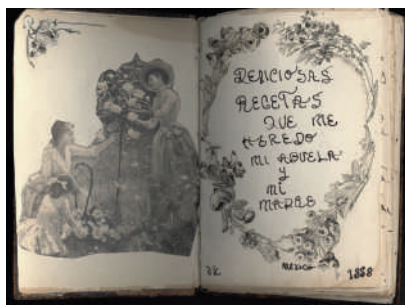 DELICIOSAS
RECETAS
QUE ME
HEREDO
MI ABUELA
Y
MI
MADRE
MEXICO
1888